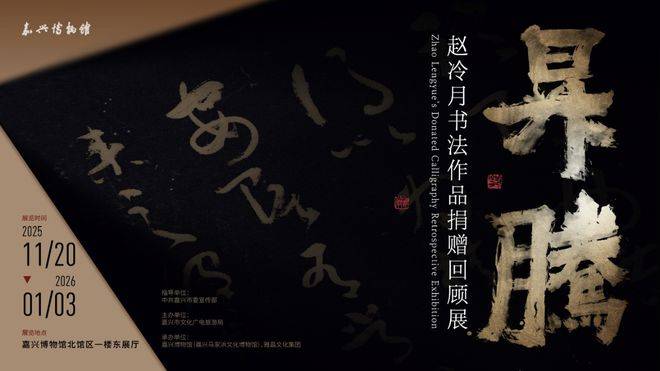 嘉兴博物馆
昇腾
赵冷月书法作品捐赠回顾展
Zhao Lengyue's Donated Calligraphy Retrospective Exhibition
展览时间
2025
11/20
2026
01/03
展览地点
嘉兴博物馆北馆区一楼东展厅
指导单位：
中共嘉兴市委宣传部
主办单位：
嘉兴市文化广电旅游局
承办单位：
嘉兴博物馆（嘉兴马家浜文化博物馆）、雅昌文化集团